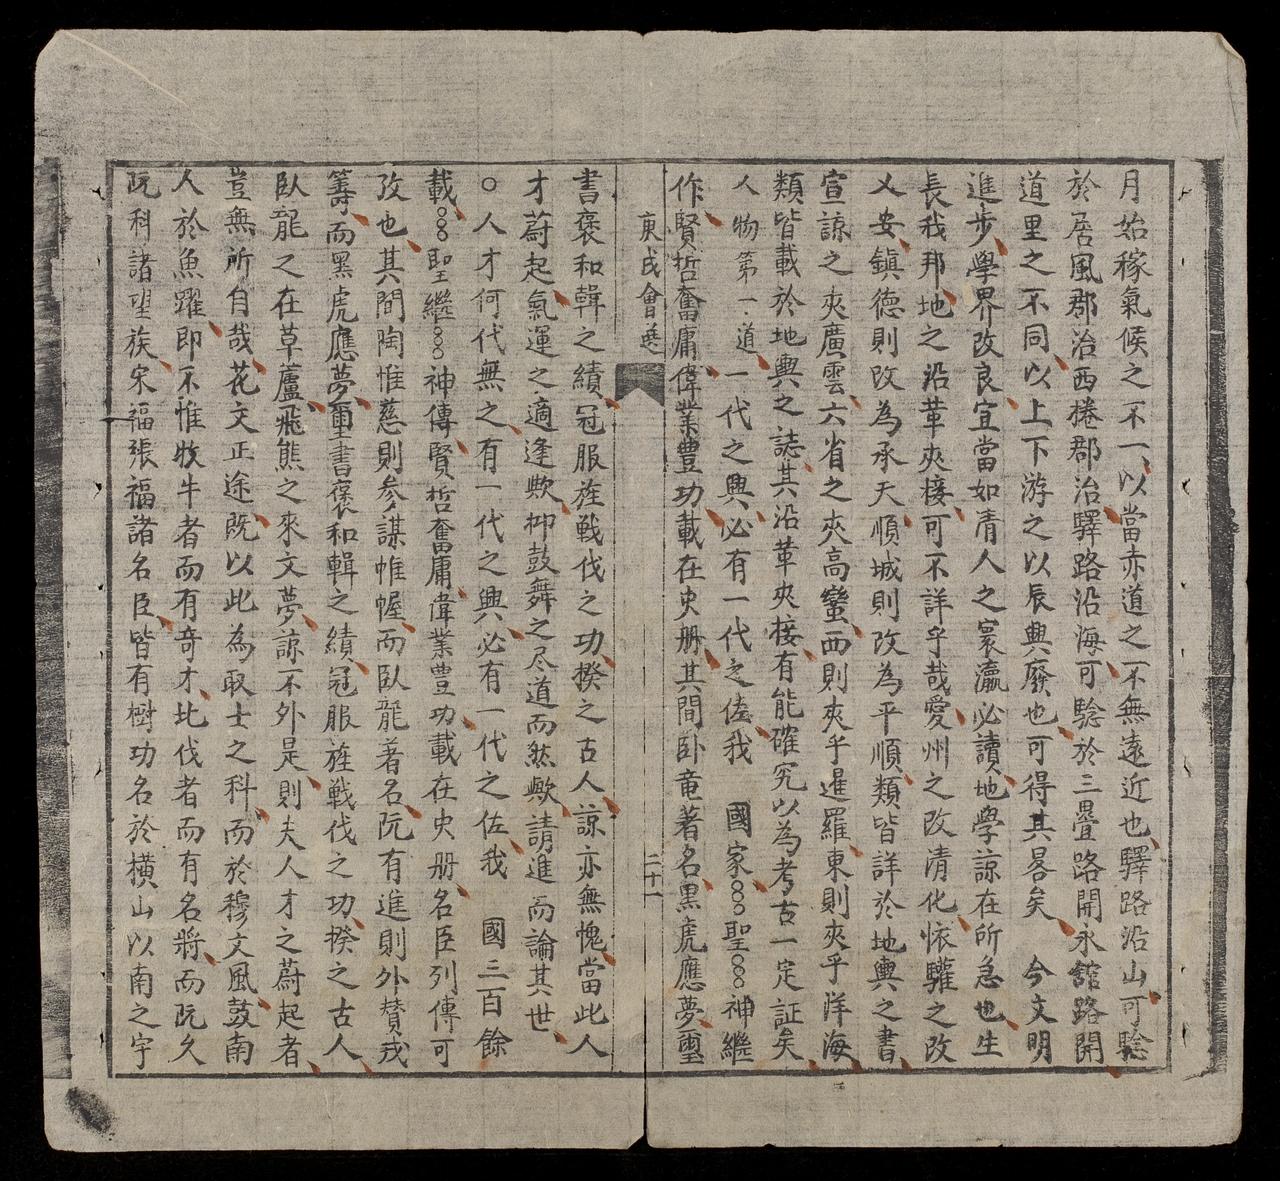 月始稼氣候之不一以當亦道之不無遠近也驛路沿山可騐
於居風郡治西捲郡治驛路沿海可騐於三疊路開永舘路開
道里之不同以上下游之以辰興廢也可得其畧矣 今文明
進步學界改良宜當如清人之寰瀛必讀地學諒在所急也生
長我邦地之沿革夾接可不詳乎哉愛州之改清化怀驩之改
乂安鎮德則改為承天順城則改為平順類皆詳於地輿之書
宣諒之夾廣雲六省之夾高蠻西則夾乎暹羅東則夾乎洋海
類皆載於地輿之誌其沿革夾接有能確究以為考古一定証矣
人物第一道一代之興必有一代之佐我 國家○○○聖○○○神繼
作賢哲奮庸偉業豊功載在史册其間卧竜著名黒虎應夢璽
庚戌會選
二十一
書褒和輯之績冠服旌戰伐之功揆之古人諒亦無愧當此人
才蔚起氣運之適逢歟抑鼓舞之尽道而然歟請進而論其世
○人才何代無之有一代之興必有一代之佐我 國三百餘
載○○聖繼○○○神傳賢哲奮庸偉業豊功載在史册名臣列傳可
攷也其間陶惟慈則參謀帷幄而臥龍著名阮有進則外賛戎
籌而黑虎應夢璽書褒和輯之績冠服旌戰伐之功揆之古人
臥龍之在草蘆飛熊之來文夢諒不外是則夫人才之蔚起者
豈無所自哉花文正途既以此為取士之科而於穆文風鼓南
人於魚躍即不惟牧牛者而有奇才北伐者而有名將而阮久
阮科諸望族宋福張福諸名臣皆有樹功名於橫山以南之宇